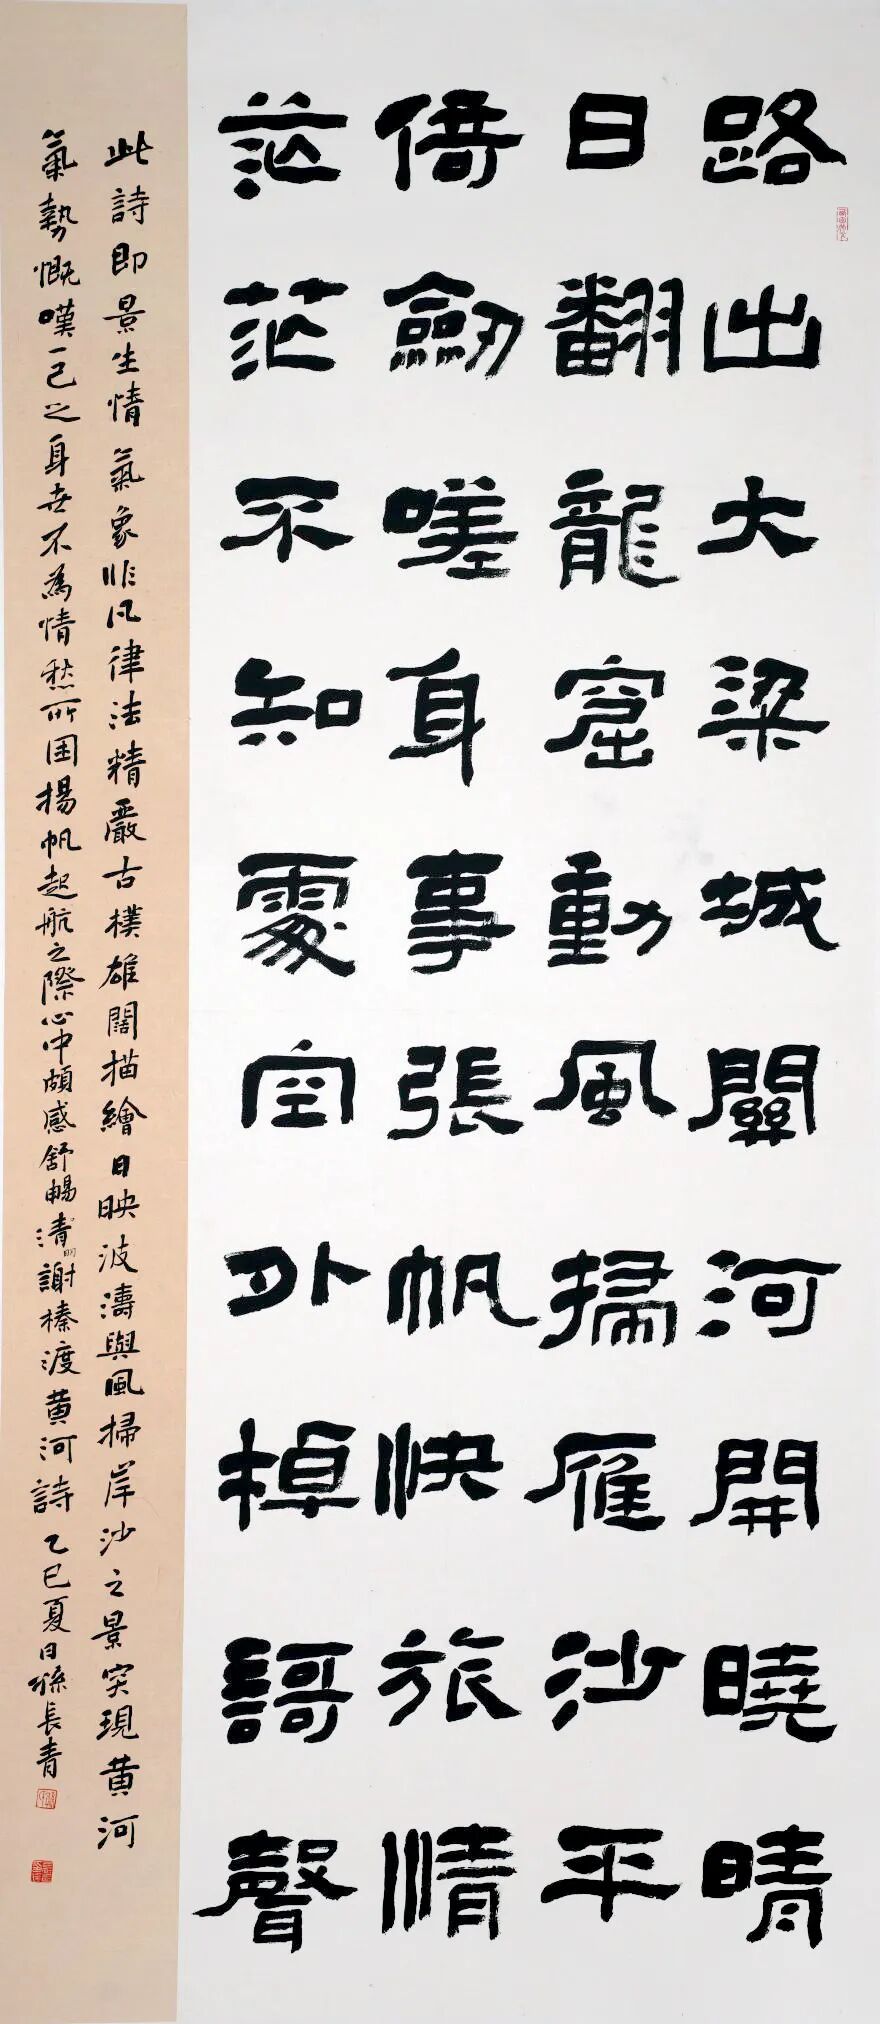 路出大梁城關河開曉晴
日翻龍窟動風掃雁沙平
倚劒嗟身事張帆快旅情
茫茫不知處空外棹謌聲
此詩即景生情氣象非凡律法精嚴古樸雄闊描繪日映波濤與風掃岸沙之景突現黃河
氣勢慨嘆一己之身世不為情愁所困揚帆起航之際心中頗感舒暢清明謝榛渡黃河詩乙巳夏日孫長青